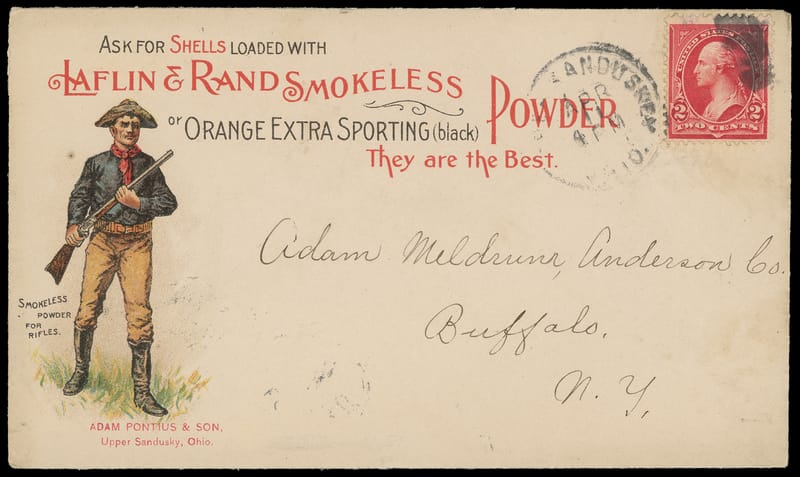 ASK FOR SHELLS LOADED WITH
LAFLIN & RAND SMOKELESS
or ORANGE EXTRA SPORTING (black) POWDER
They are the Best.
UNITED STATES
2 2
TWO CENTS
SANDUSKY
APR
4 PM
Adam Meldrum, Anderson Co.
Buffalo.
N. Y.
SMOKELESS
POWDER
FOR
RIFLES.
ADAM PONTIUS & SON,
Upper Sandusky, Ohio.